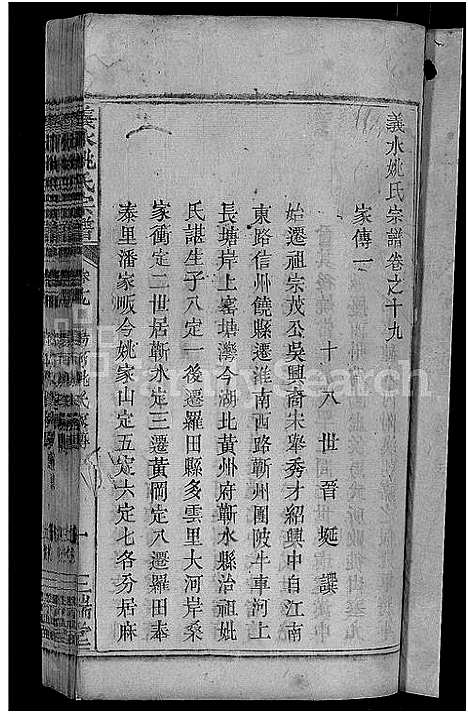 義水姚氏宗譜卷之十九
家傳一
十八世晉蜒譔
始遷祖宗茂公吳興裔宋舉秀才紹興中自江南
東路信州饒縣遷淮南西路蘄州團陂牛車河上
長塘岸上窰塘灣今湖北黃州府蘄水縣治祖妣
氏諶生子八定一後遷羅田縣多雲里大河岸桑
家衝定二世居蘄水定三遷黃岡定八遷羅田奉
泰里潘家畈今姚家山定五定六定七各分居麻
義水姚氏宗譜
卷十九
一
三瑞堂
FamilySearch